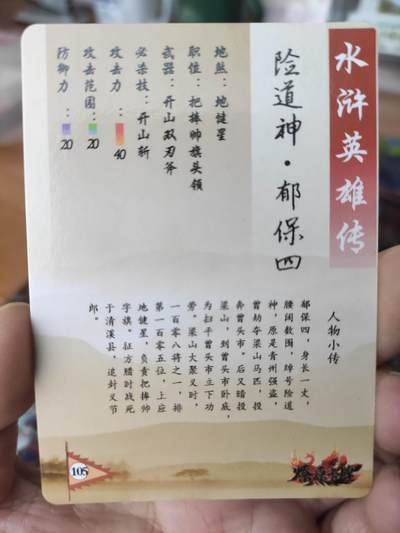 水浒英雄传
险道神·郁保四
地煞：地健星
职位：把捧帅旗头领
武器：开山双刃斧
必杀技：开山斩
攻击力：40
攻击范围：20
防御力：20
人物小传
郁保四，身长一丈，
腰阔数围，绰号险道
神，原是青州强盗，
曾劫夺梁山马匹，投
奔曾头市。后又暗投
梁山，到曾头市卧底，
为扫平曾头市立下功
劳。梁山大聚义时，
一百零八将之一，排
第一百零五位，上应
地健星，负责把捧帅
字旗。征方腊时战死
于清溪县，追封义节
郎。
105